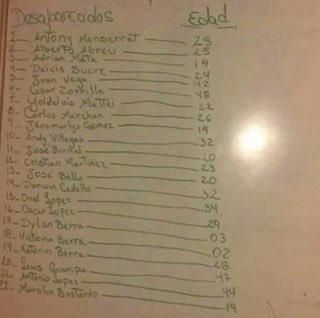 Desaparecidos Edad
1- Antony Monserrat 25
2- Alberto Abreu 25
3- Adrian Mata 19
4- Deivis Sucre 24
5- Juan Vega 42
6- Cesar Zorrilla 48
7- Yoldelvis Mattei 22
8- Carlos Merchan 26
9- Gomez 19
10- Andy Villegas 32
11- José Birriel 20
12- Cristian Martinez 23
13- José Bello 20
14- Darwin Cedeño 32
15- Onel Lopez 34
16- Oscar Lopez 29
17- Dylan Berra 03
18- Victoria Berra 02
19- Katerin Berra 28
20- Luis 47
21- Antonio Lopez 44
22- Marolin Bastardo 19